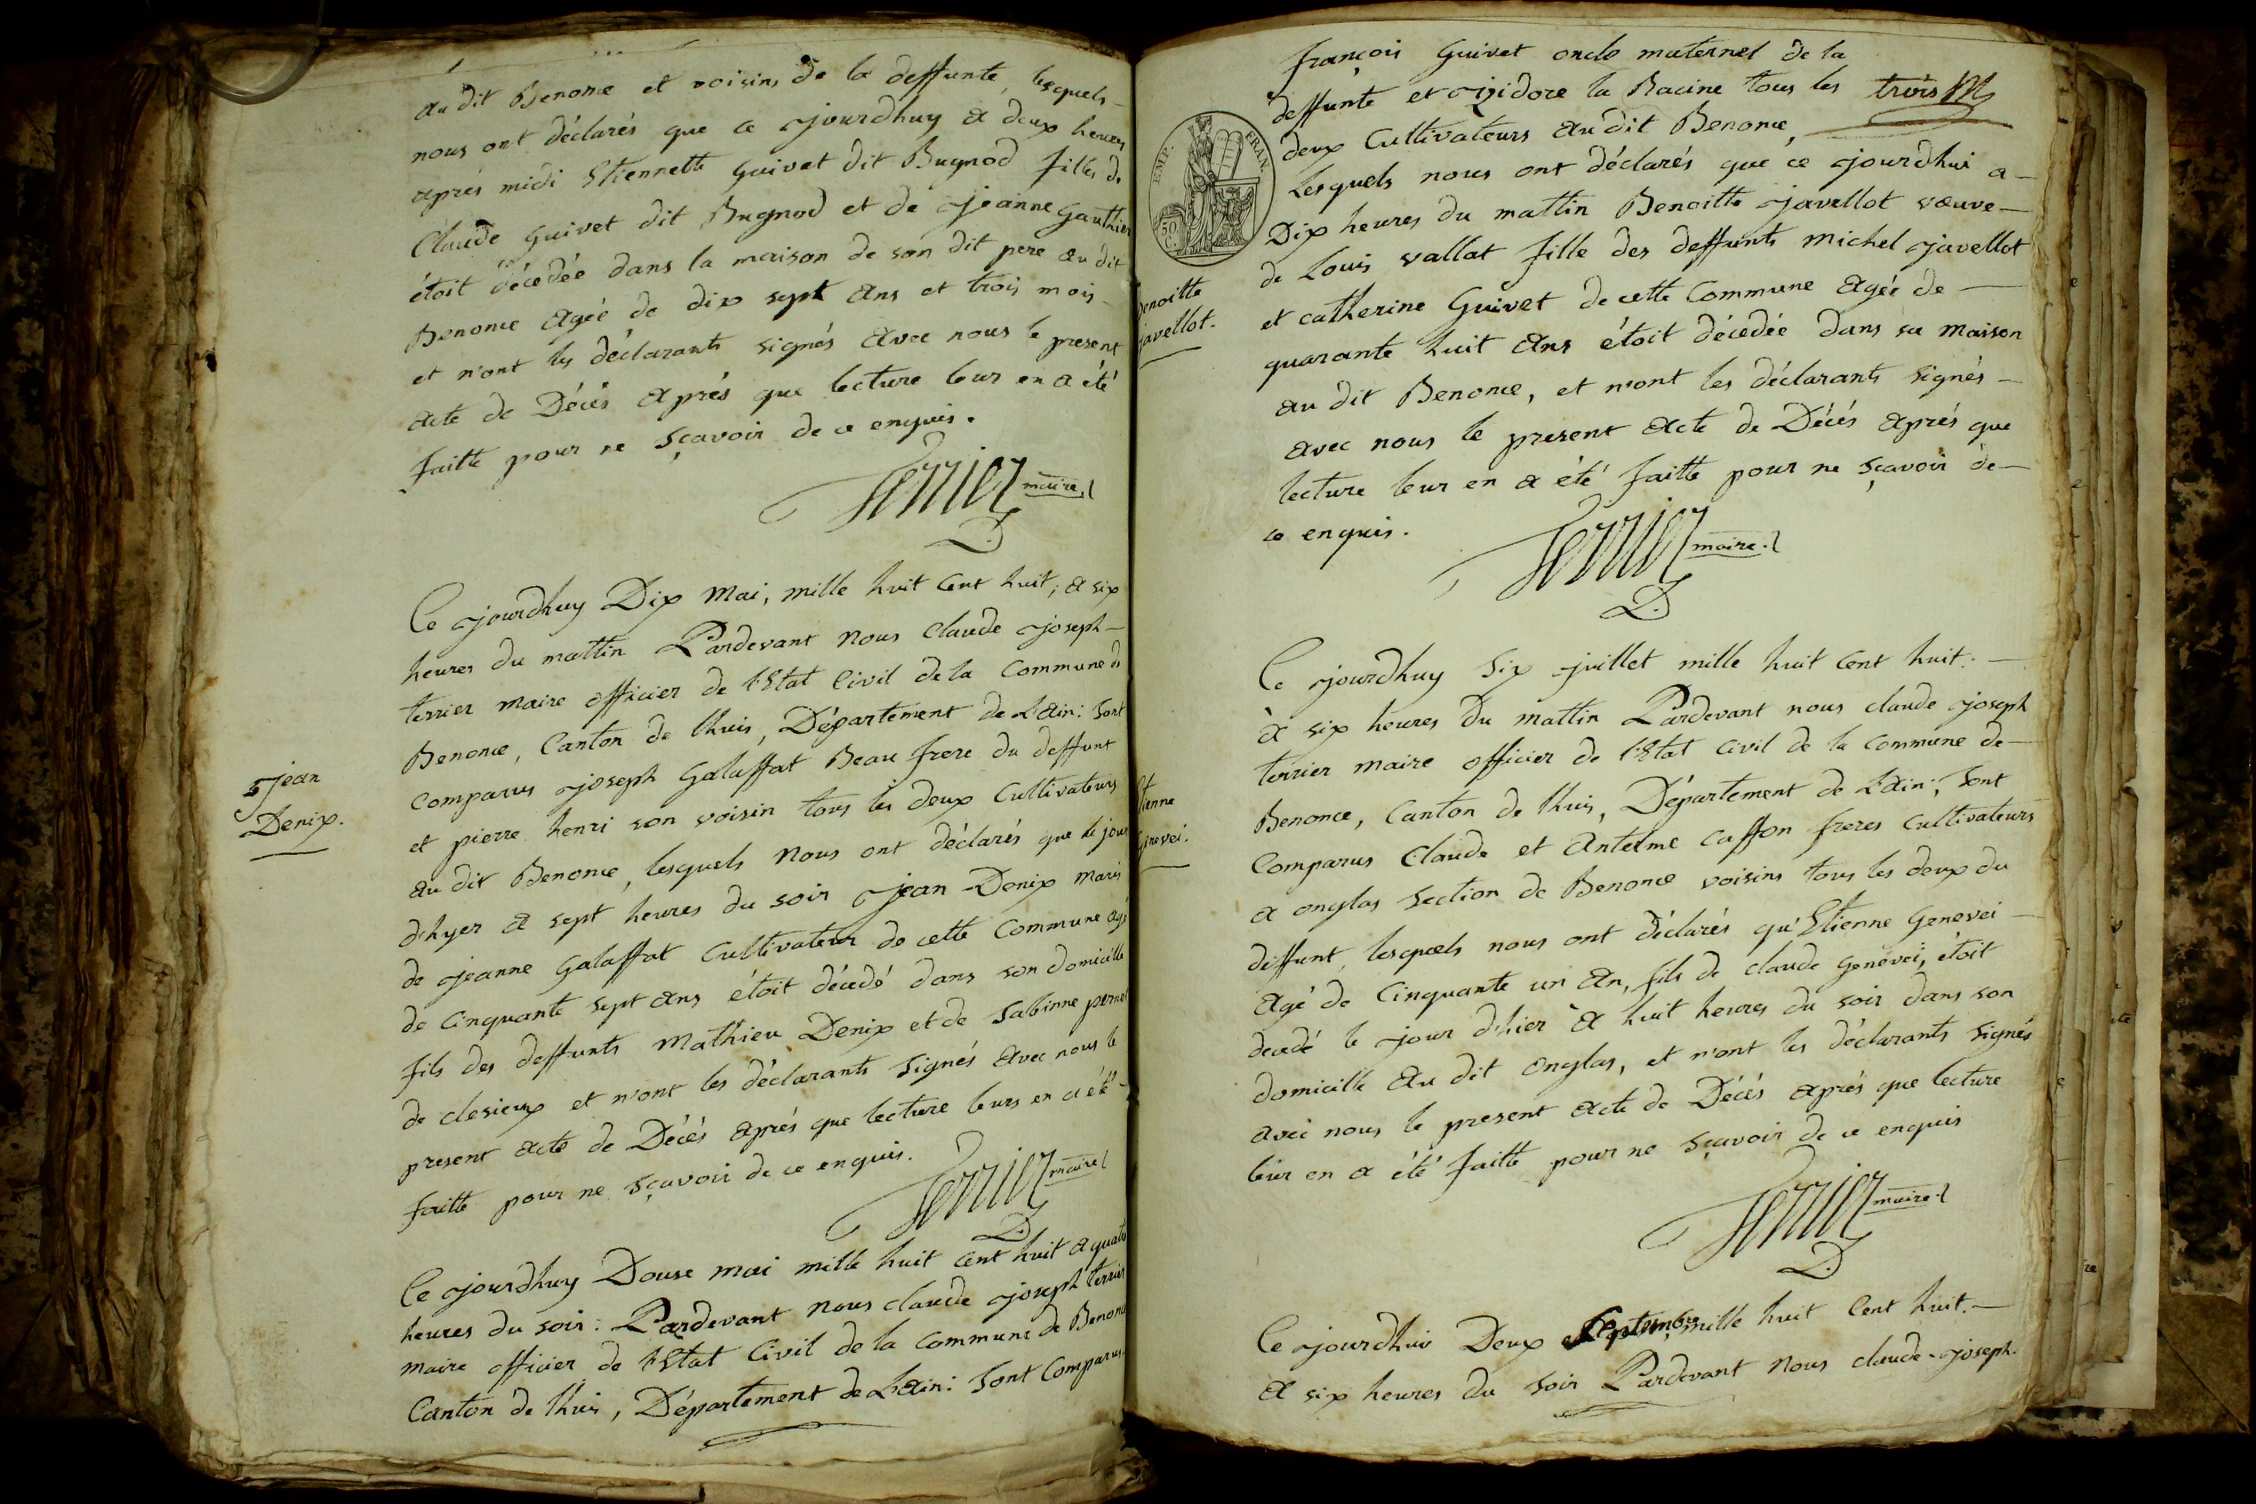 au dit Benonce et voisins de la deffunte, lesquels
nous ont déclarés que ce jourdhuy a deux heures
aprés midi Etiennette Guivet dit Bugnod fille de
Claude Guivet dit Bugnod et de Jeanne Gauthier
étoit décedée dans la maison de son dit pere au dit
Benonce agée de dix sept ans et trois mois
et n'ont les déclarants signés avec nous le present
acte de Décés aprés que lecture leur en a été
faitte pour ne sçavoir de ce enquis.
Terrier maire
Jean
Denix.
Ce jourdhuy Dix Mai, mille huit cent huit; a six
heures du mattin Pardevant Nous Claude joseph
terrier maire officier de l'Etat Civil de la Commune de
Benonce, Canton de lhuis, Département de L'ain: Sont
comparus joseph Galaffat Beau frere du deffunt
et pierre henri son voisin tous les deux Cultivateurs
au dit Benonce, lesquels Nous ont déclarés que le jour
d'hyer a sept heures du soir Jean Denix Maris
de jeanne Galaffat Cultivateur de cette Commune agé
de Cinquante sept ans étoit décedé dans son domicille
fils des deffunts Mathieu Denix et de Sabinne pernet
de clesieux et n'ont les déclarants Signés avec nous le
present acte de Décés aprés que lecture leurs en a été
faitte pour ne sçavoir de ce enquis.
Terrier maire
Ce jourdhuy Douse mai mille huit Cent huit a quatre
heures du soir: Pardevant Nous claude joseph terrier
maire officier de l'Etat Civil de la Commune de Benonce
Canton de lhuis, Département de L'ain: Sont Comparus
françois Guivet oncle maternel de la
deffunte et isidore la Racine tous les trois
deux Cultivateurs au dit Benonce,
EMP. FRAN.
50 C.
Lesquels nous ont déclarés que ce jourdhui a
Dix heures du mattin Benoitte Javellot vœuve
de Louis vallat fille des deffunts Michel Javellot
Benoitte
javellot.
et catherine Guivet de cette Commune agée de
quarante huit ans étoit décedée dans sa Maison
au dit Benonce, et n'ont les déclarants signés
avec nous le present acte de Décés aprés que
lecture leur en a été faitte pour ne sçavoir de
ce enquis.
Terrier maire
Ce jourdhuy Six juillet mille huit Cent huit:
à six heures du mattin Pardevant nous claude joseph
terrier maire officier de l'Etat Civil de la Commune de
Etienne
Genevei.
Benonce, Canton de lhuis, Département de L'ain; Sont
Comparus Claude et Antelme Caffon freres Cultivateurs
a onglas Section de Benonce voisins tous les deux du
deffunt, lesquels nous ont déclarés qu'Etienne Genevei
Agé de Cinquante un an, fils de claude Genevei, étoit
decedé le jour d'hier a huit heures du soir dans son
domicille au dit onglas, et n'ont les déclarants Signés
avec nous le present acte de Décés aprés que lecture
leur en a été faitte pour ne sçavoir de ce enquis
Terrier maire
Ce jourdhui Deux Septembre mille huit Cent huit.
a six heures du soir Pardevant Nous claude joseph